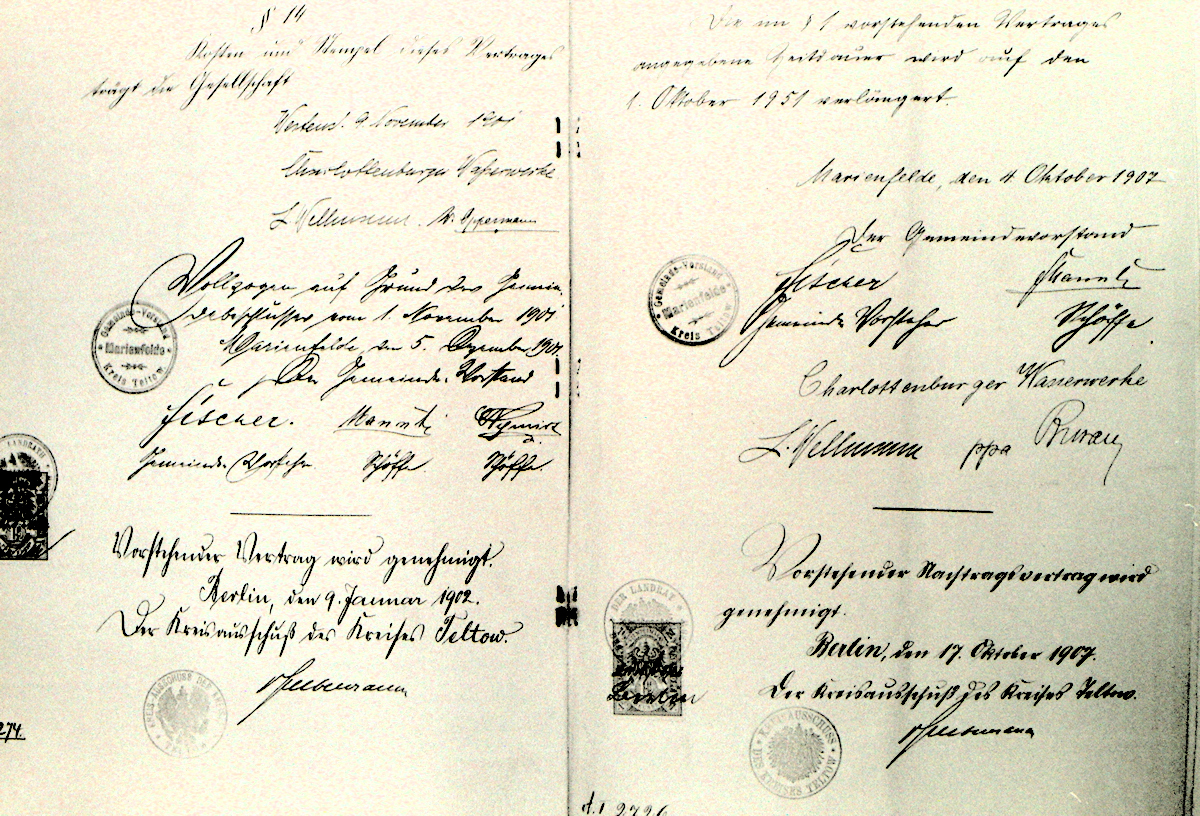 § 14
Kosten und Stempel dieses Vertrages
trägt die Gesellschaft
Westend. 9. November 1901
Charlottenburger Waßerwerke
L. Wellmann. W. Oppermann
Vollzogen auf Grund des Gemein-
debeschlusses vom 1. November 1901
Marienfelde, den 5. Dezember 1901.
Der Gemeinde-Vorstand
Gemeinde-Vorstand
Marienfelde
Kreis Teltow
Fischer.
Gemeinde-Vorsteher Schöffe Schöffe
LANDRATH
Vorstehender Vertrag wird genehmigt.
Berlin, den 9. Januar 1902.
Der Kreisausschuß des Kreises Teltow.
274.
Die im § 1 vorstehenden Vertrages
angegebene Zeitdauer wird auf den
1. Oktober 1951 verlängert.
Marienfelde, den 4 Oktober 1907
Der Gemeindevorstand
Gemeinde-Vorstand
Marienfelde
Kreis Teltow
Fischer
Gemeinde-Vorsteher Schöffe
Charlottenburger Wasserwerke
L. Wellmann ppa
Vorstehender Nachtragsvertrag wird
genehmigt.
Berlin, den 17. Oktober 1907.
Der Kreisausschuß des Kreises Teltow.
DER LANDRAT
Berlin
KREIS AUSSCHUSS
DES KREISES TELTOW